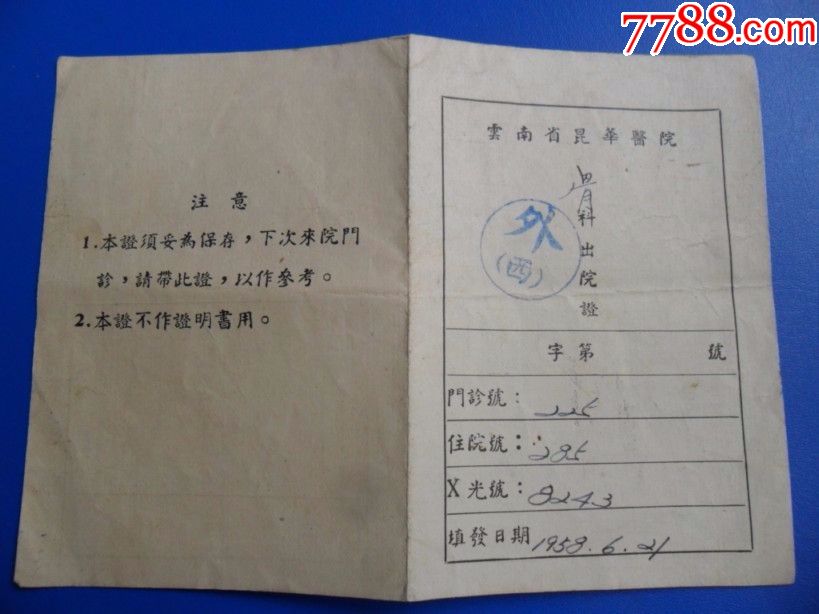 7788.com
注 意
1.本證須妥為保存，下次來院門
診，請帶此證，以作參考。
2.本證不作證明書用。
雲南省昆華醫院
骨科出院證
外
(西)
字第 號
門診號：225
住院號：285
X光號：8243
填發日期 1958.6.21